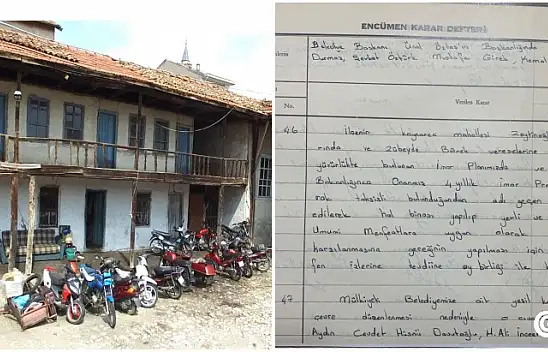 ENCÜMEN KARAR DEFTERİ
Belediye Başkanı, Ünal Başkanlığında
Durmaz, Sevket Öztürk, Mustafa Gürek, Kemal
No.
Verilen Karar
46 İlçenin kaynarca mahallesi Zeytinoğlu
rında ve Zübeyde vereselerine
yürürlükte bulunan İmar Planımızda ve
Bakanlığınca Onanmış 4 yıllık imar Pr
rak tahsisli bulunduğundan adı geçen
edilerek hal binası yapılıp yerli ve
Umumi Menfeatlara uygun olarak
karşılanmasına gereğinin yapılması için
fen işlerine tevdiine oy birliği ile k
47 Mülkiyeti Belediyemize ait yeşil
çevre düzenlenmesi nedeniyle
Aydın Cevdet Hüsnü Davutoğlu, H. Ali İnce